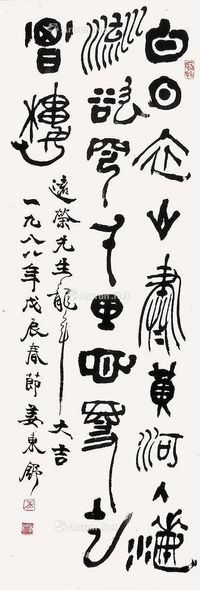 白日依山盡黃河入海
流欲窮千里目更上
層樓
遠榮先生龍年大吉
一九八八年戊辰春節姜東舒